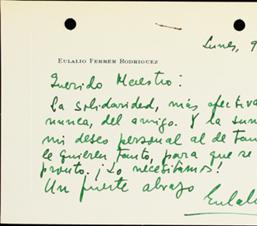 Lunes, 9
EULALIO FERRER RODRIGUEZ
Querido Maestro:
La solidaridad, más efectiva
nunca, del amigo. Y la sum
mi deseo personal al de tan
le quieren tanto, para que se
pronto. ¡Lo necesitamos!
Un fuerte abrazo
Eulali